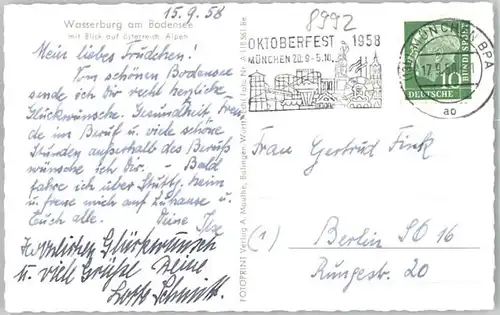 15.9.58
8992
Wasserburg am Bodensee
mit Blick auf österreich. Alpen
Mein liebes Trudchen!
Vom schönen Bodensee
sende ich Dir recht herzliche
Glückwünsche. Gesundheit, Freu-
de im Beruf u. viele schöne
Stunden außerhalb des Berufs
wünsche ich Dir. – Bald
fahre ich über Stuttg. heim
u. freue mich auf Zuhause u.
Euch alle. Deine Ilse
Herzlichen Glückwunsch
u. viel Grüße Deine
Lotte Schmitt.
FOTOPRINT Verlag A. Mauthe, Balingen, Württ.
OKTOBERFEST 1958
MÜNCHEN 20.9.-5.10.
MÜNCHEN BPA
17.9.
ab
10
DEUTSCHE
BUNDESPOST
Frau Gertrud Fink
(1) Berlin SO 16
Rungestr. 20